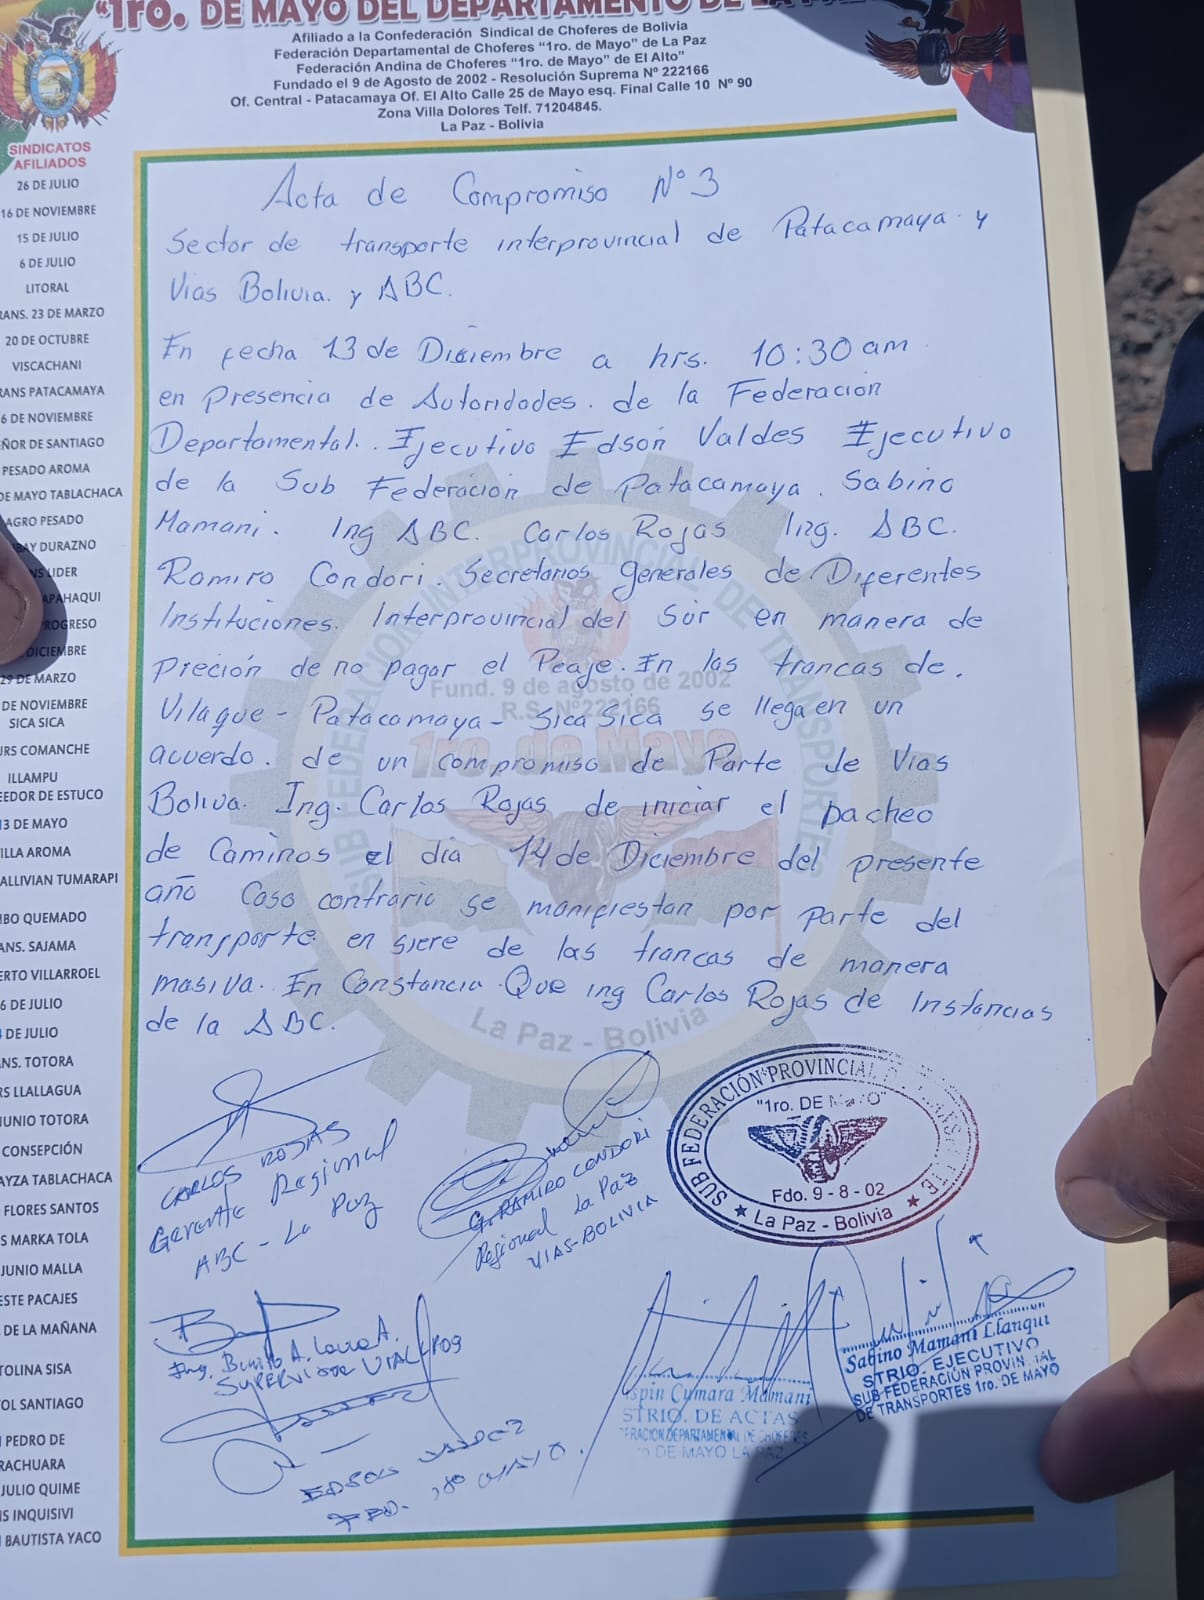 "1ro. DE MAYO DEL DEPARTAMENTO DE LA
Afiliado a la Confederación Sindical de Choferes de Bolivia
Federación Departamental de Choferes "1ro. de Mayo" de La Paz
Federación Andina de Choferes "1ro. de Mayo" de El Alto"
Fundado el 9 de Agosto de 2002 - Resolución Suprema Nº 222166
Of. Central - Patacamaya Of. El Alto Calle 25 de Mayo esq. Final Calle 10 Nº 90
Zona Villa Dolores Telf. 71204845.
La Paz - Bolivia
SINDICATOS
AFILIADOS
26 DE JULIO
16 DE NOVIEMBRE
15 DE JULIO
6 DE JULIO
LITORAL
RANS. 23 DE MARZO
20 DE OCTUBRE
VISCACHANI
RANS PATACAMAYA
6 DE NOVIEMBRE
ÑOR DE SANTIAGO
PESADO AROMA
DE MAYO TABLACHACA
AGRO PESADO
AY DURAZNO
LIDER
APAHAQUI
ROGRESO
DICIEMBRE
29 DE MARZO
DE NOVIEMBRE
SICA SICA
RS COMANCHE
ILLAMPU
EEDOR DE ESTUCO
13 DE MAYO
ILLA AROMA
ALLIVIAN TUMARAPI
MBO QUEMADO
ANS. SAJAMA
ERTO VILLARROEL
6 DE JULIO
DE JULIO
NS. TOTORA
RS LLALLAGUA
JUNIO TOTORA
CONSEPCIÓN
AYZA TABLACHACA
FLORES SANTOS
S MARKA TOLA
JUNIO MALLA
ESTE PACAJES
DE LA MAÑANA
TOLINA SISA
OL SANTIAGO
PEDRO DE
RACHUARA
JULIO QUIME
S INQUISIVI
BAUTISTA YACO
Acta de Compromiso Nº 3
Sector de transporte interprovincial de Patacamaya y
Vias Bolivia. y ABC.
En fecha 13 de Diciembre a hrs. 10:30 am
en Presencia de Autoridades. de la Federación
Departamental. Ejecutivo Edson Valdes Ejecutivo
de la Sub Federación de Patacamaya. Sabino
Mamani. Ing ABC. Carlos Rojas Ing. ABC.
Ramiro Condori. Secretarios generales de Diferentes
Instituciones. Interprovincial del Sur en manera de
Preción de no pagar el Peaje. En las trancas de.
Vilaque - Patacamaya - Sica Sica se llega en un
acuerdo. de un compromiso de Parte de Vias
Boliva. Ing. Carlos Rojas de iniciar el pacheo
de Caminos el dia 14 de Diciembre del presente
año Caso contrario se manifiestan por parte del
transporte en siere de las trancas de manera
masiva. En Constancia Que ing Carlos Rojas de Instancias
de la ABC.
SUB FEDERACIÓN INTERPROVINCIAL DE TRANSPORTES
Fund. 9 de agosto de 2002
R.S. Nº 222166
1ro. de Mayo
La Paz - Bolivia
CARLOS ROJAS
Gerente Regional
ABC - La Paz
G. RAMIRO CONDORI
Regional La Paz
VIAS-BOLIVIA
SUB FEDERACIÓN PROVINCIAL
"1ro. DE MAYO"
Fdo. 9 - 8 - 02
La Paz - Bolivia
Ing. Benito A.
SUPERVISOR VIAL
EDSON VALDEZ
FED. 1º MAYO
spin Cumara Mamani
STRIO. DE ACTAS
ERACION DEPARTAMENTAL DE CHOFERES
DE MAYO LA PAZ
Sabino Mamani Llanqui
STRIO. EJECUTIVO
SUB FEDERACIÓN PROVINCIAL
DE TRANSPORTES 1ro. DE MAYO